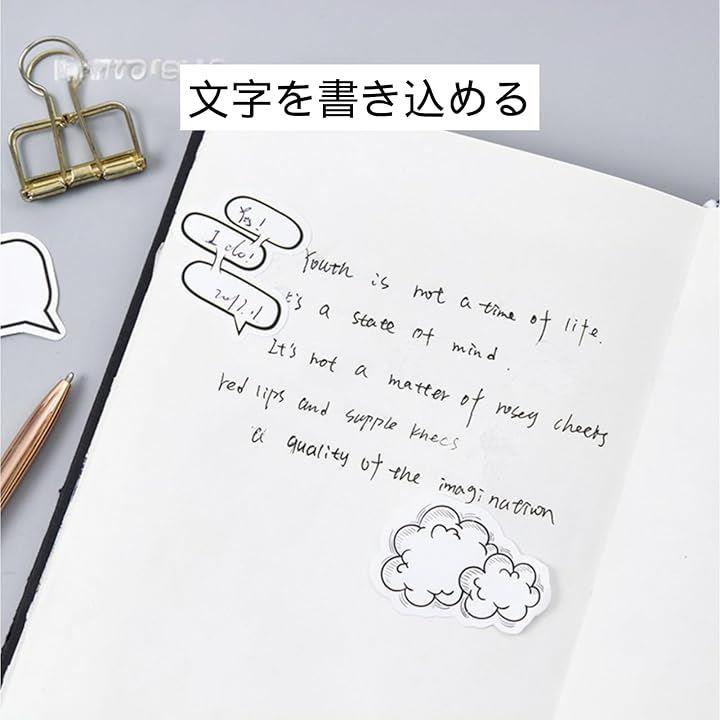 文字を書き込める
Yes!
I do!
Youth is not a time of life.
it's a state of mind.
It's not a matter of rosey cheers
red lips and supple knees
a quality of the imagination